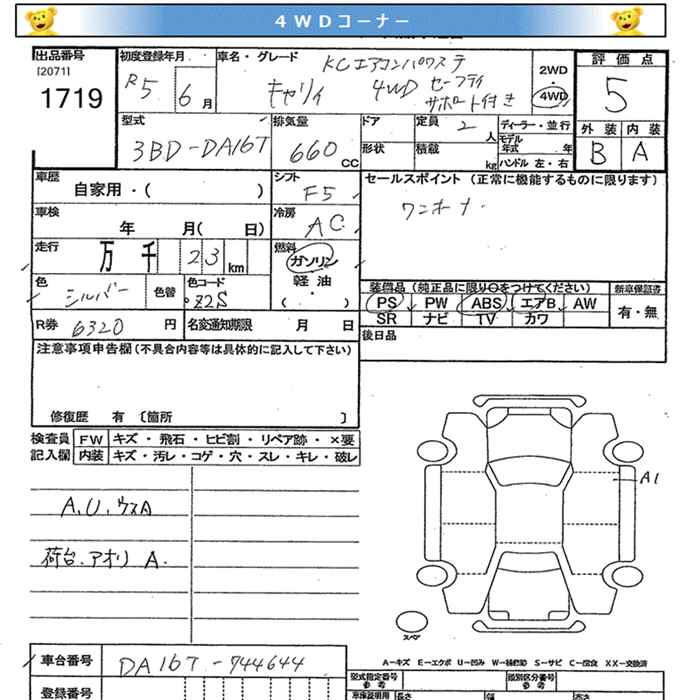 4WDコーナー
出品番号
[2071]
1719
初度登録年月
R5 6月
車名・グレード
KCエアコンパワステ
キャリイ 4WD セーフティ
サポート付き
2WD
4WD
評価点
5
外装 内装
B A
型式
3BD-DA16T
排気量
660cc
ドア
形状
定員 2人
積載 kg
ディーラー・並行
モデル年式 年
ハンドル 左・右
車歴
自家用・( )
シフト
F5
車検
年 月( 日)
冷房
AC
走行
万千23km
燃料
ガソリン
軽油
・
( )
色
シルバー
色替
色コード
Z2S
R券 6320円
名変通知期限 月 日
セールスポイント(正常に機能するものに限ります)
ワンオーナ
装備品(純正品に限り〇をつけてください)
PS PW ABS エアB AW
SR ナビ TV カワ
新車保証書
有・無
後日品
注意事項申告欄(不具合内容等は具体的に記入して下さい)
修復歴 有 〔箇所 〕
検査員
記入欄
FW キズ・飛石・ヒビ割・リペア跡・×要
内装 キズ・汚レ・コゲ・穴・スレ・キレ・破レ
A.U.ウスA
荷台.アオリ A.
A1
スペア
A-キズ E-エクボ U-凹み W-補修跡 S-サビ C-腐食 XX-交換済
車台番号
DA16T-744644
登録番号
型式指定番号
参考
類別区分番号
参考
車庫証明用
長さ
幅
高さ